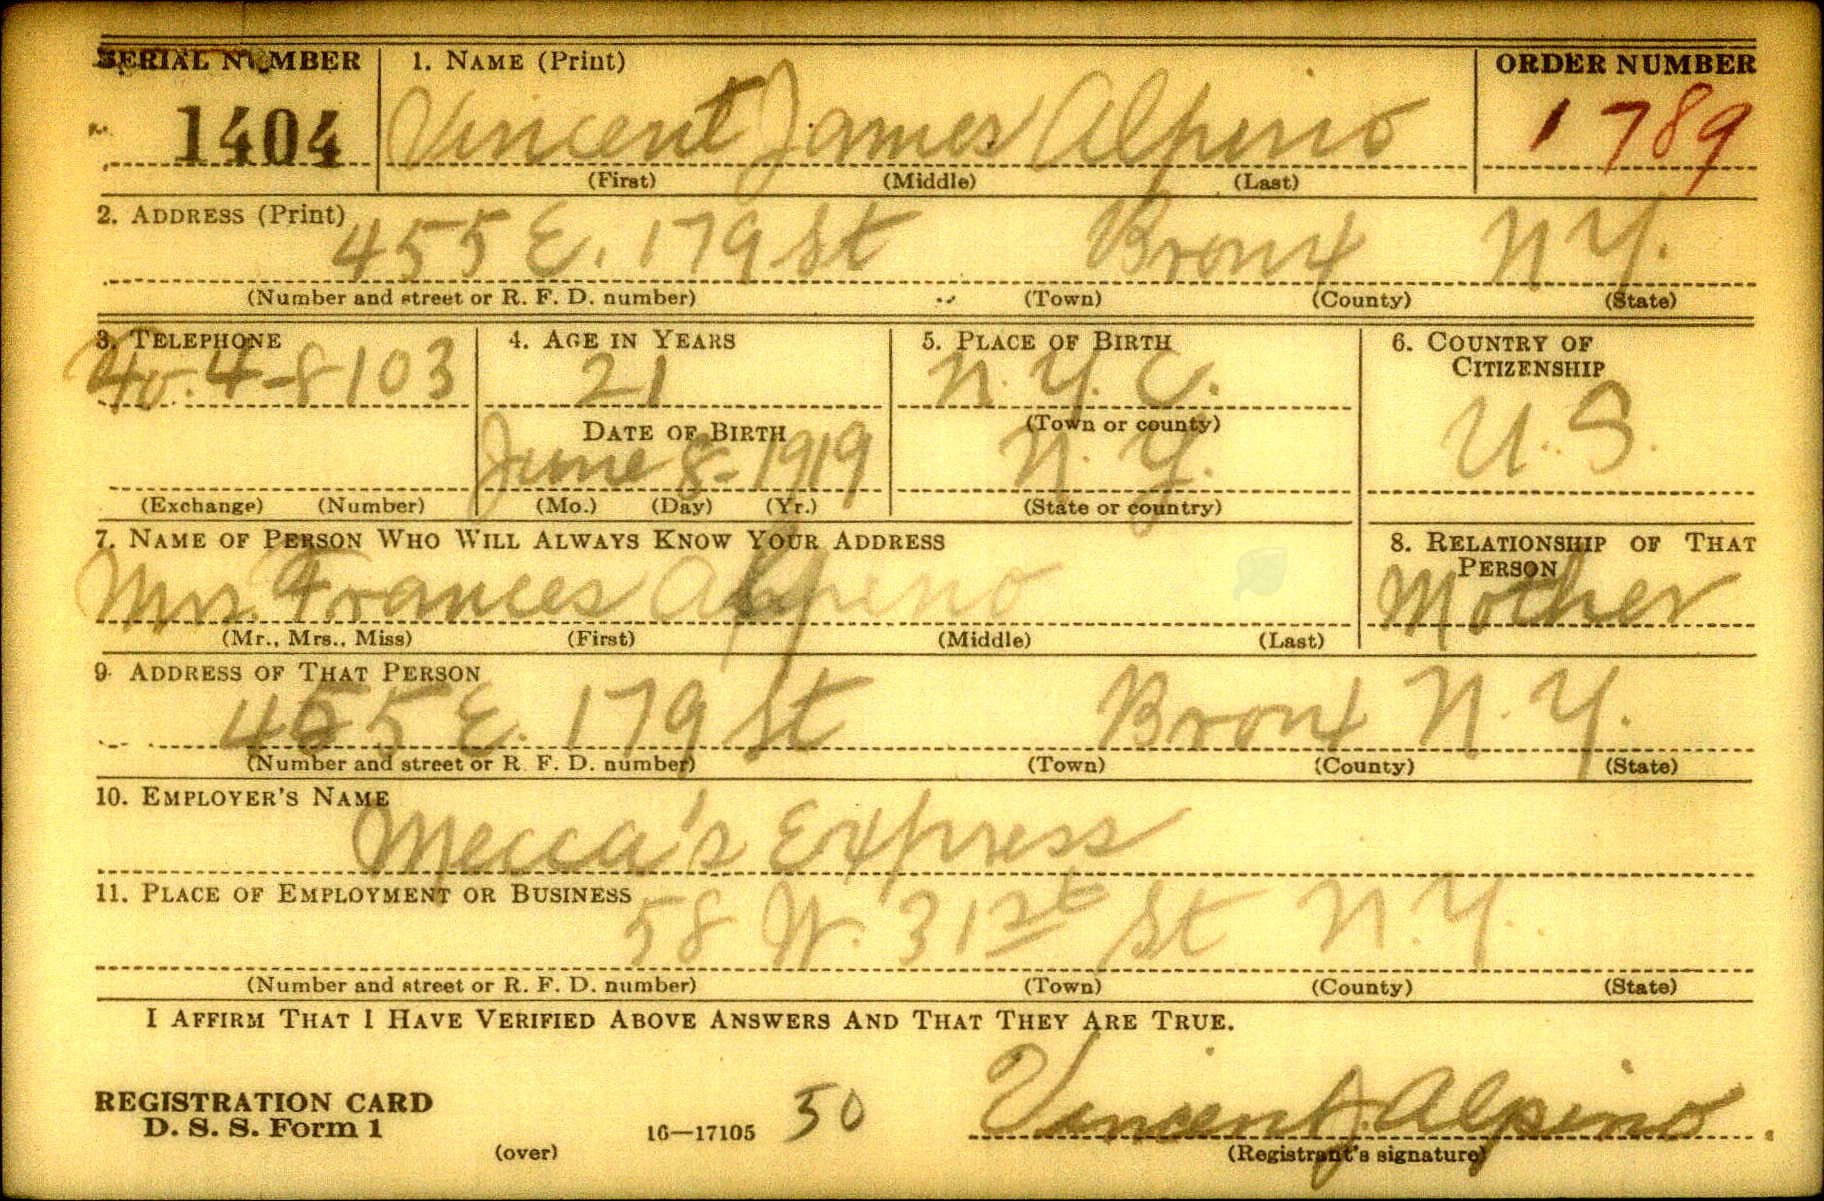 SERIAL NUMBER 1. NAME (Print) ORDER NUMBER
1404 Vincent James Alpino 1789
(First) (Middle) (Last)
2. ADDRESS (Print)
455 E. 179 St Bronx N.Y.
(Number and street or R. F. D. number) (Town) (County) (State)
3. TELEPHONE 4. AGE IN YEARS 5. PLACE OF BIRTH 6. COUNTRY OF CITIZENSHIP
4-8103 21 N.Y.C. U.S.
DATE OF BIRTH (Town or county)
June 8-1919 N.Y.
(Exchange) (Number) (Mo.) (Day) (Yr.) (State or country)
7. NAME OF PERSON WHO WILL ALWAYS KNOW YOUR ADDRESS 8. RELATIONSHIP OF THAT PERSON
Mrs. Frances Alpino Mother
(Mr., Mrs., Miss) (First) (Middle) (Last)
9. ADDRESS OF THAT PERSON
455 E. 179 St Bronx N.Y.
(Number and street or R. F. D. number) (Town) (County) (State)
10. EMPLOYER'S NAME
Mecca's Express
11. PLACE OF EMPLOYMENT OR BUSINESS
58 W. 31st St N.Y.
(Number and street or R. F. D. number) (Town) (County) (State)
I AFFIRM THAT I HAVE VERIFIED ABOVE ANSWERS AND THAT THEY ARE TRUE.
REGISTRATION CARD
D. S. S. Form 1 16—17105 50 Vincent J. Alpino
(over) (Registrant's signature)